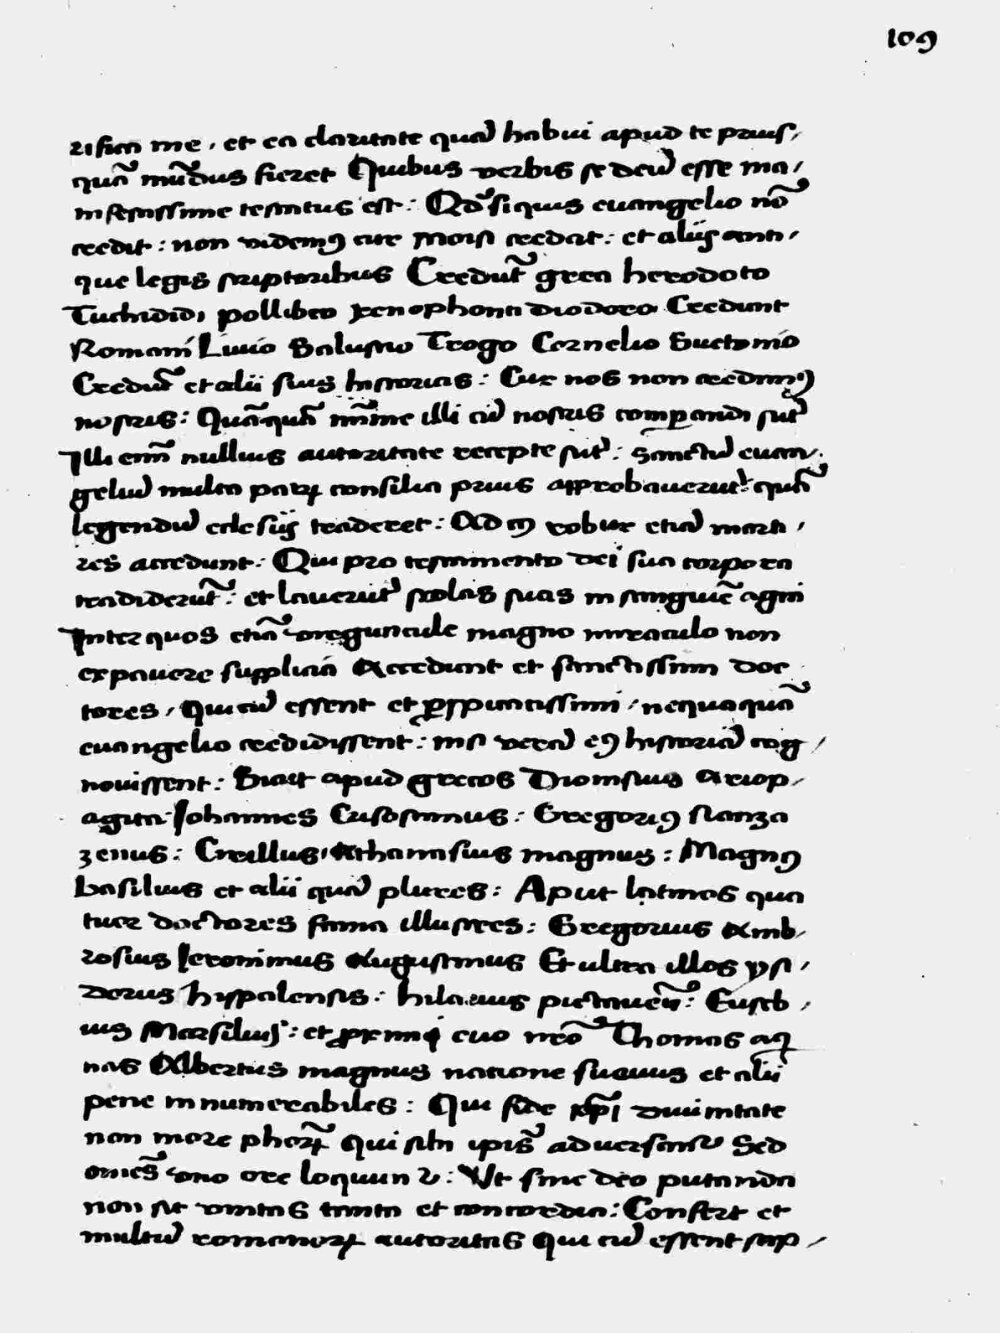 109
rifica me, et ea claritate quā habui apud te prius,
quā mūdus fieret Quibus verbis se deū esse ma,
nifestissime testatus est: Qđ si quis euangelio nō
credit: non videmꝰ cur Moisi credat: et aliis anti,
que legis scriptoribus Credūt greci herodoto
Tuchididi pollibeo xenophonti diodoro Credunt
Romani Liuio Salustio Trogo Cornelio Suetonio
Credūt et alii suis historias: Cur nos non credimꝰ
nostris: Quāquā mīme illi cū nostris comparandi sūt
Illi enī nullius autoritate recepte sūt: Sanctū euan,
geliū multa patrꝝ consilia prius approbauerūt: quā
legendū eclesiis traderet: Ad ꝙ robur etiā marti,
res accedunt: Qui pro testamento dei sua corpora
tradiderūt: et lauerūt stolas suas in sanguīe agni
Inter quos etiā virguncule magno miraculo non
expauere supplicia Accedunt et sanctissimi doc
tores, Qui cū essent et ꝑspicacissimi, nequaquā
euangelio credidissent: nisi verā eꝰ historiā cog,
nouissent: Sicut apud grecos Dionisius Ariop,
agita: Johannes Crisostimus: Gregoriꝰ Nanza
zenus: Cirillus, Athanasius magnus: Magnꝰ
basilius et alii quā plures: Aput latinos qua
tuor doctores fama illustres: Gregorius Amb,
rosius Ieronimus Augustinus Et ultra illos ysi,
dorus hispalensis: hilarius pictauēs: Euseb,
ius Marsilius: et ꝓximi euo nr̄o Thomas aq
nas Albertus magnus natione sueuus et alii
pene innumerabiles: Qui fide xp̄i diuinitate
non more phorꝝ qui sibi ipīs aduersantur Sed
om̄es vno ore loquunr: Vt sine deo putanda
non sit vnitas tanta et concordia: Confert et
multū romanorꝝ autoritas Qui cū essent sap,